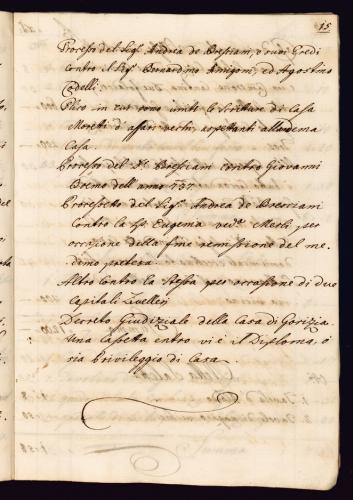 15
Processo del Sig.r Andrea de Bresciani, e suoi Eredi
contro il Sig.r Bernardino Amigoni, ed Agostino
Codelli.
Plico in cui sono unite le scritture di Casa
Moretti d'affari vechi, aspettanti alla medema
Casa.
Processo del Bresciani contro Giovanni
Bremo dell'anno
Processetto del Sig.r Andrea de Bresciani
Contro la Eugenia ved.a Mesli per
occasione della fine remissione del me-
demo pretesa.
Altro contro la stessa per occasione di due
Capitali Livellej
Decreto Giudiziale della Casa di Gorizia.
Una Cassetta entro vi è il Diploma, o
sia Privileggio di Casa.